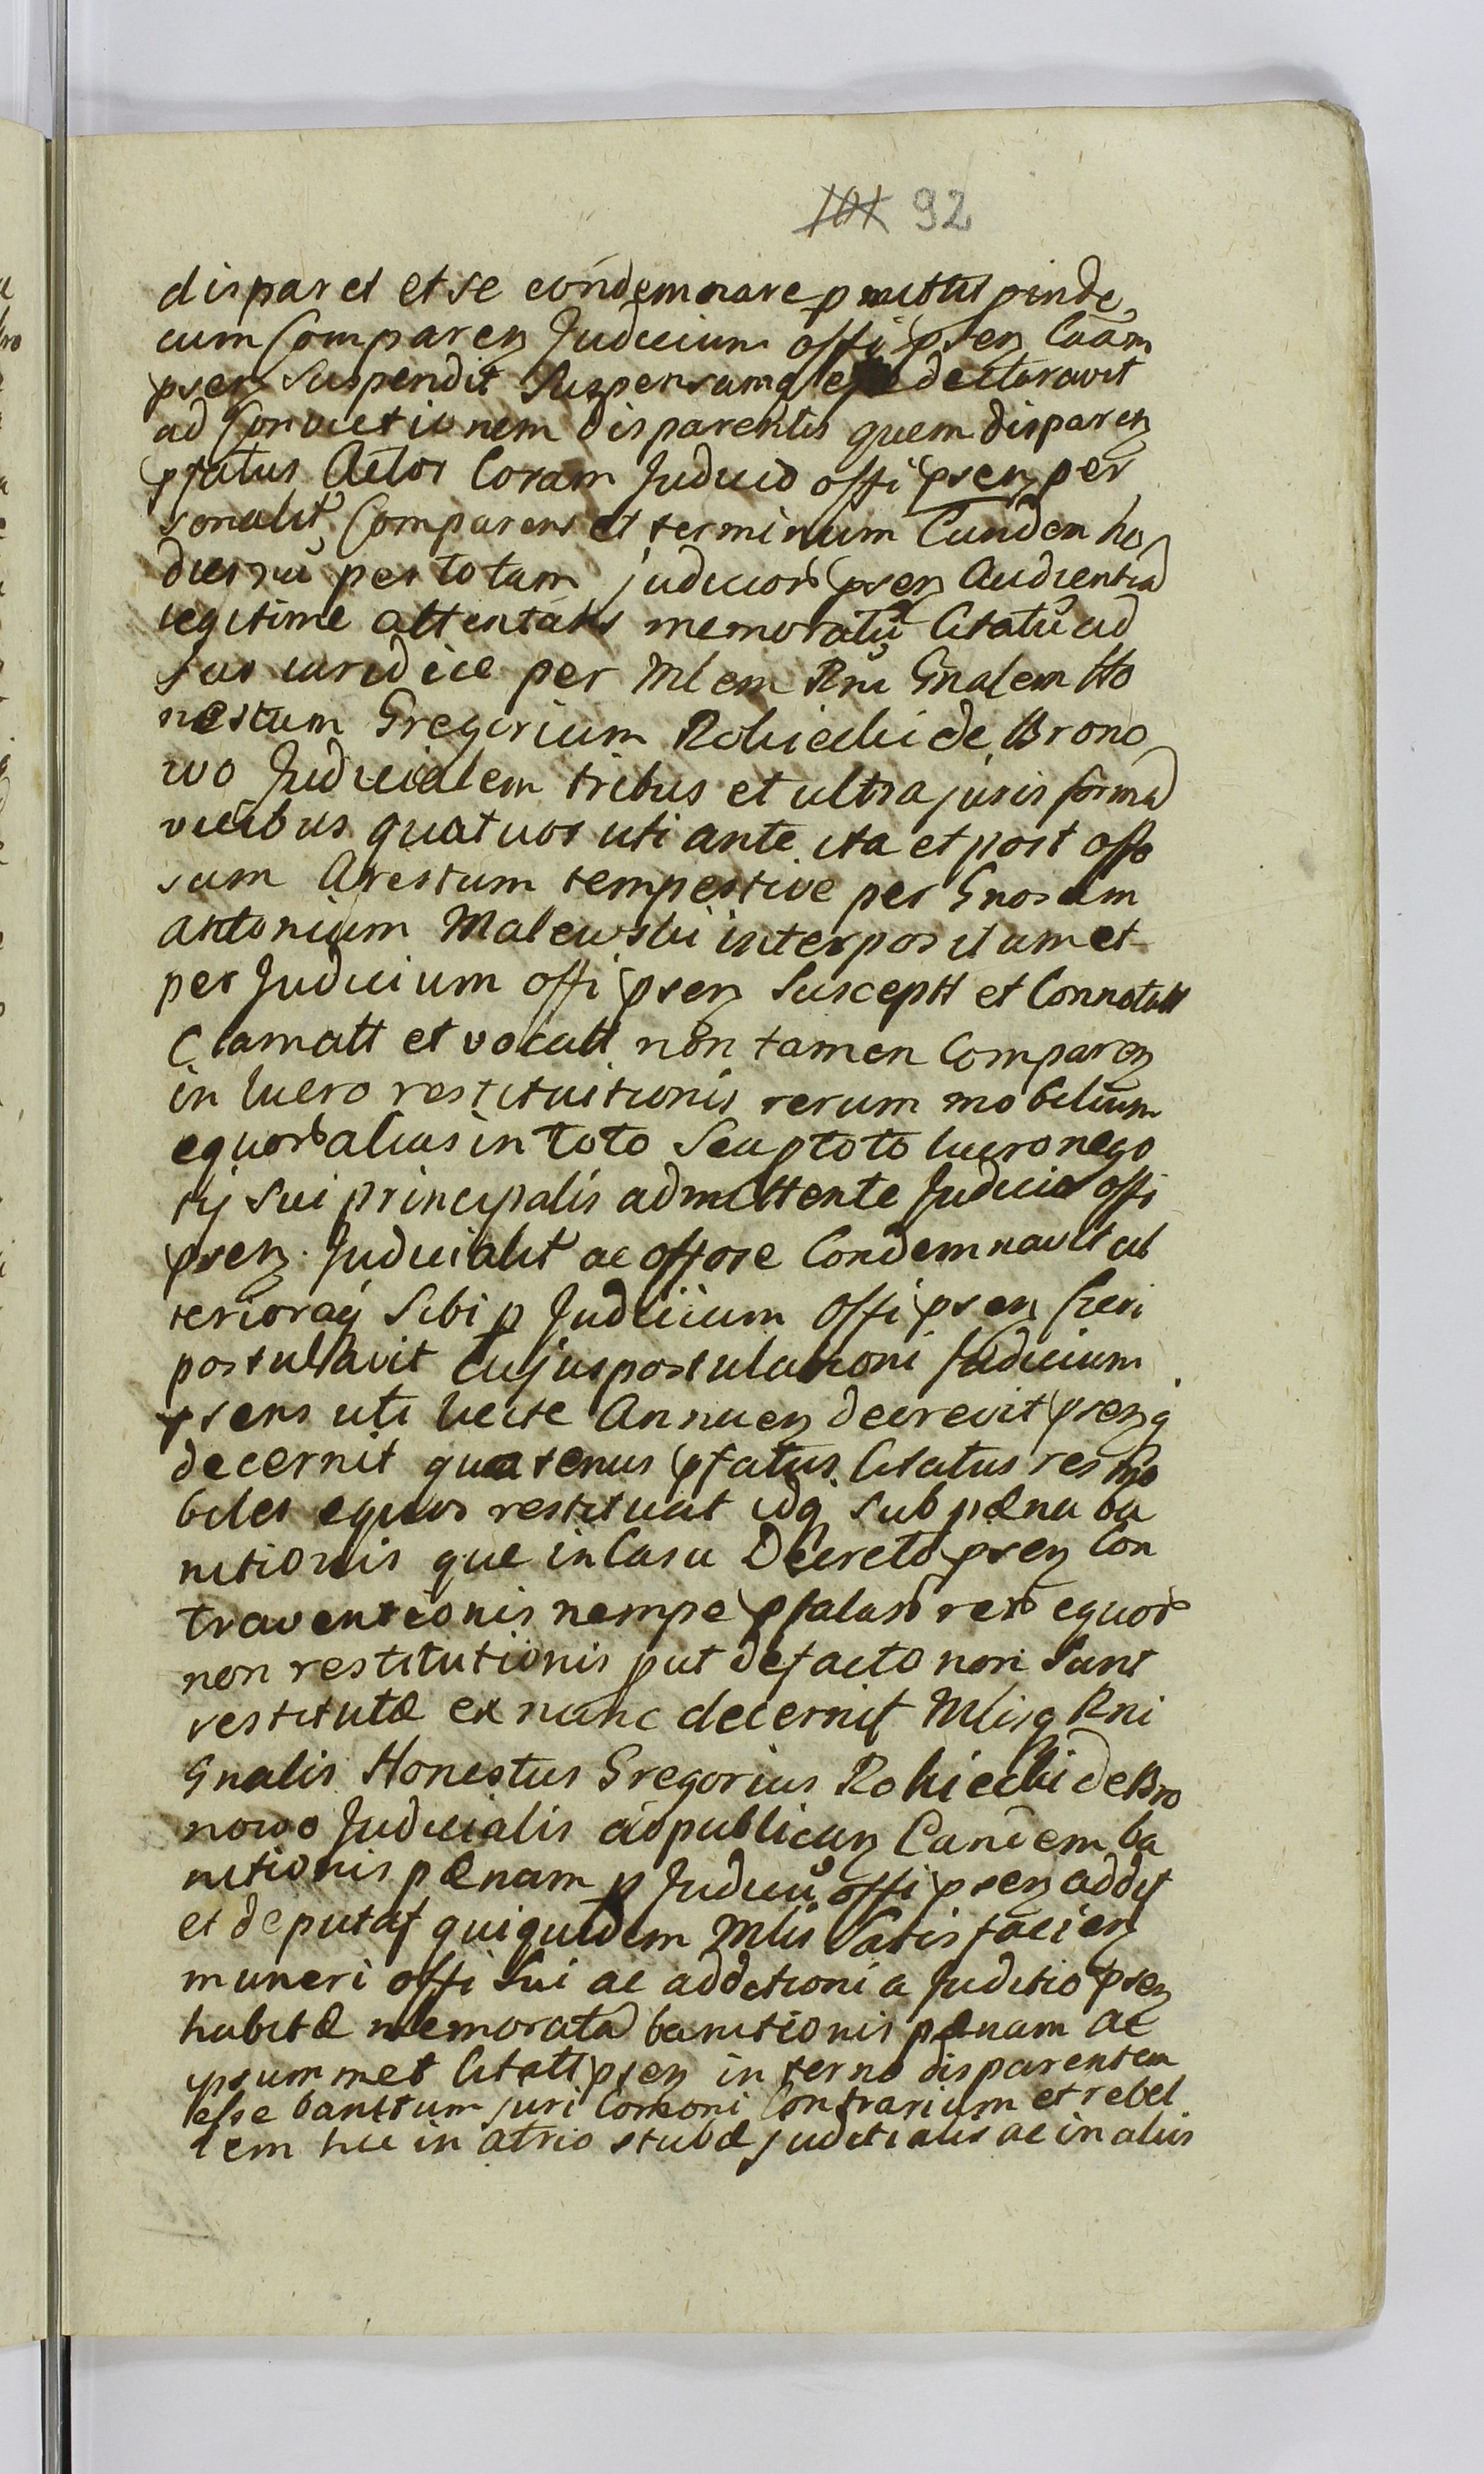 101 92
disparet et se condemnare pmittit pinde
cum Comparen Judicium offi psen Caam
psen Suspendit Suspensamq esse declaravit
ad Convictionem disparentis quem disparen
pfatus Actor Coram Judicio offi psen per
sonalit Comparens et terminum Eundem ho
diernu per totam judicior psen Audientia
legitime attentans memoratu Citatu ad
Sui iuridice per Mlem Rni Gnalem Ho
nestum Gregorium Rokiecki de Brono
wo Judicialem tribus et ultra juris forma
vicibus quatuor uti ante ita et post offo
sum Arestum tempestive per Gnosum
Antonium Malewski interpositum et
per Judicium offi psen Susceptt et Connotatt
Clamatt et vocatt non tamen Comparen
in lucro restituitionis rerum mobilium
equor alias in toto Seu ptoto lucro nego
tij sui principalis admittente Judicio offi
psen Judicialit ac offose Condemnavit ul
terioraq Sibi p Judicium offi psen fieri
postulavit Cujus postulationi Judicium
psens uti licite Annuen decrevit psenq
decernit quatenus pfatus Citatus res mo
biles equos restituat idq sub pæna ba
nitionis quæ in Casu Decreto psen Con
traventionis nempe pfatar rer equor
non restitutionis put defacto non Sunt
restitutæ ex nunc decernit Mlisq Rni
Gnalis Honestus Gregorius Rokiecki de Bro
nowo Judicialis ad publican Eandem ba
nitionis pænam p Judiciu offi psen addit
et deputat qui quidem Mlis Satisfacien
muneri offi Sui ac additioni a Juditio psen
habitæ memorata banitionis pænam ac
ipsummet Citatt psen in terno disparentem
esse banitum juri Comoni Contrarium et rebel
lem hic in atrio stubæ juditialis ac in aliis